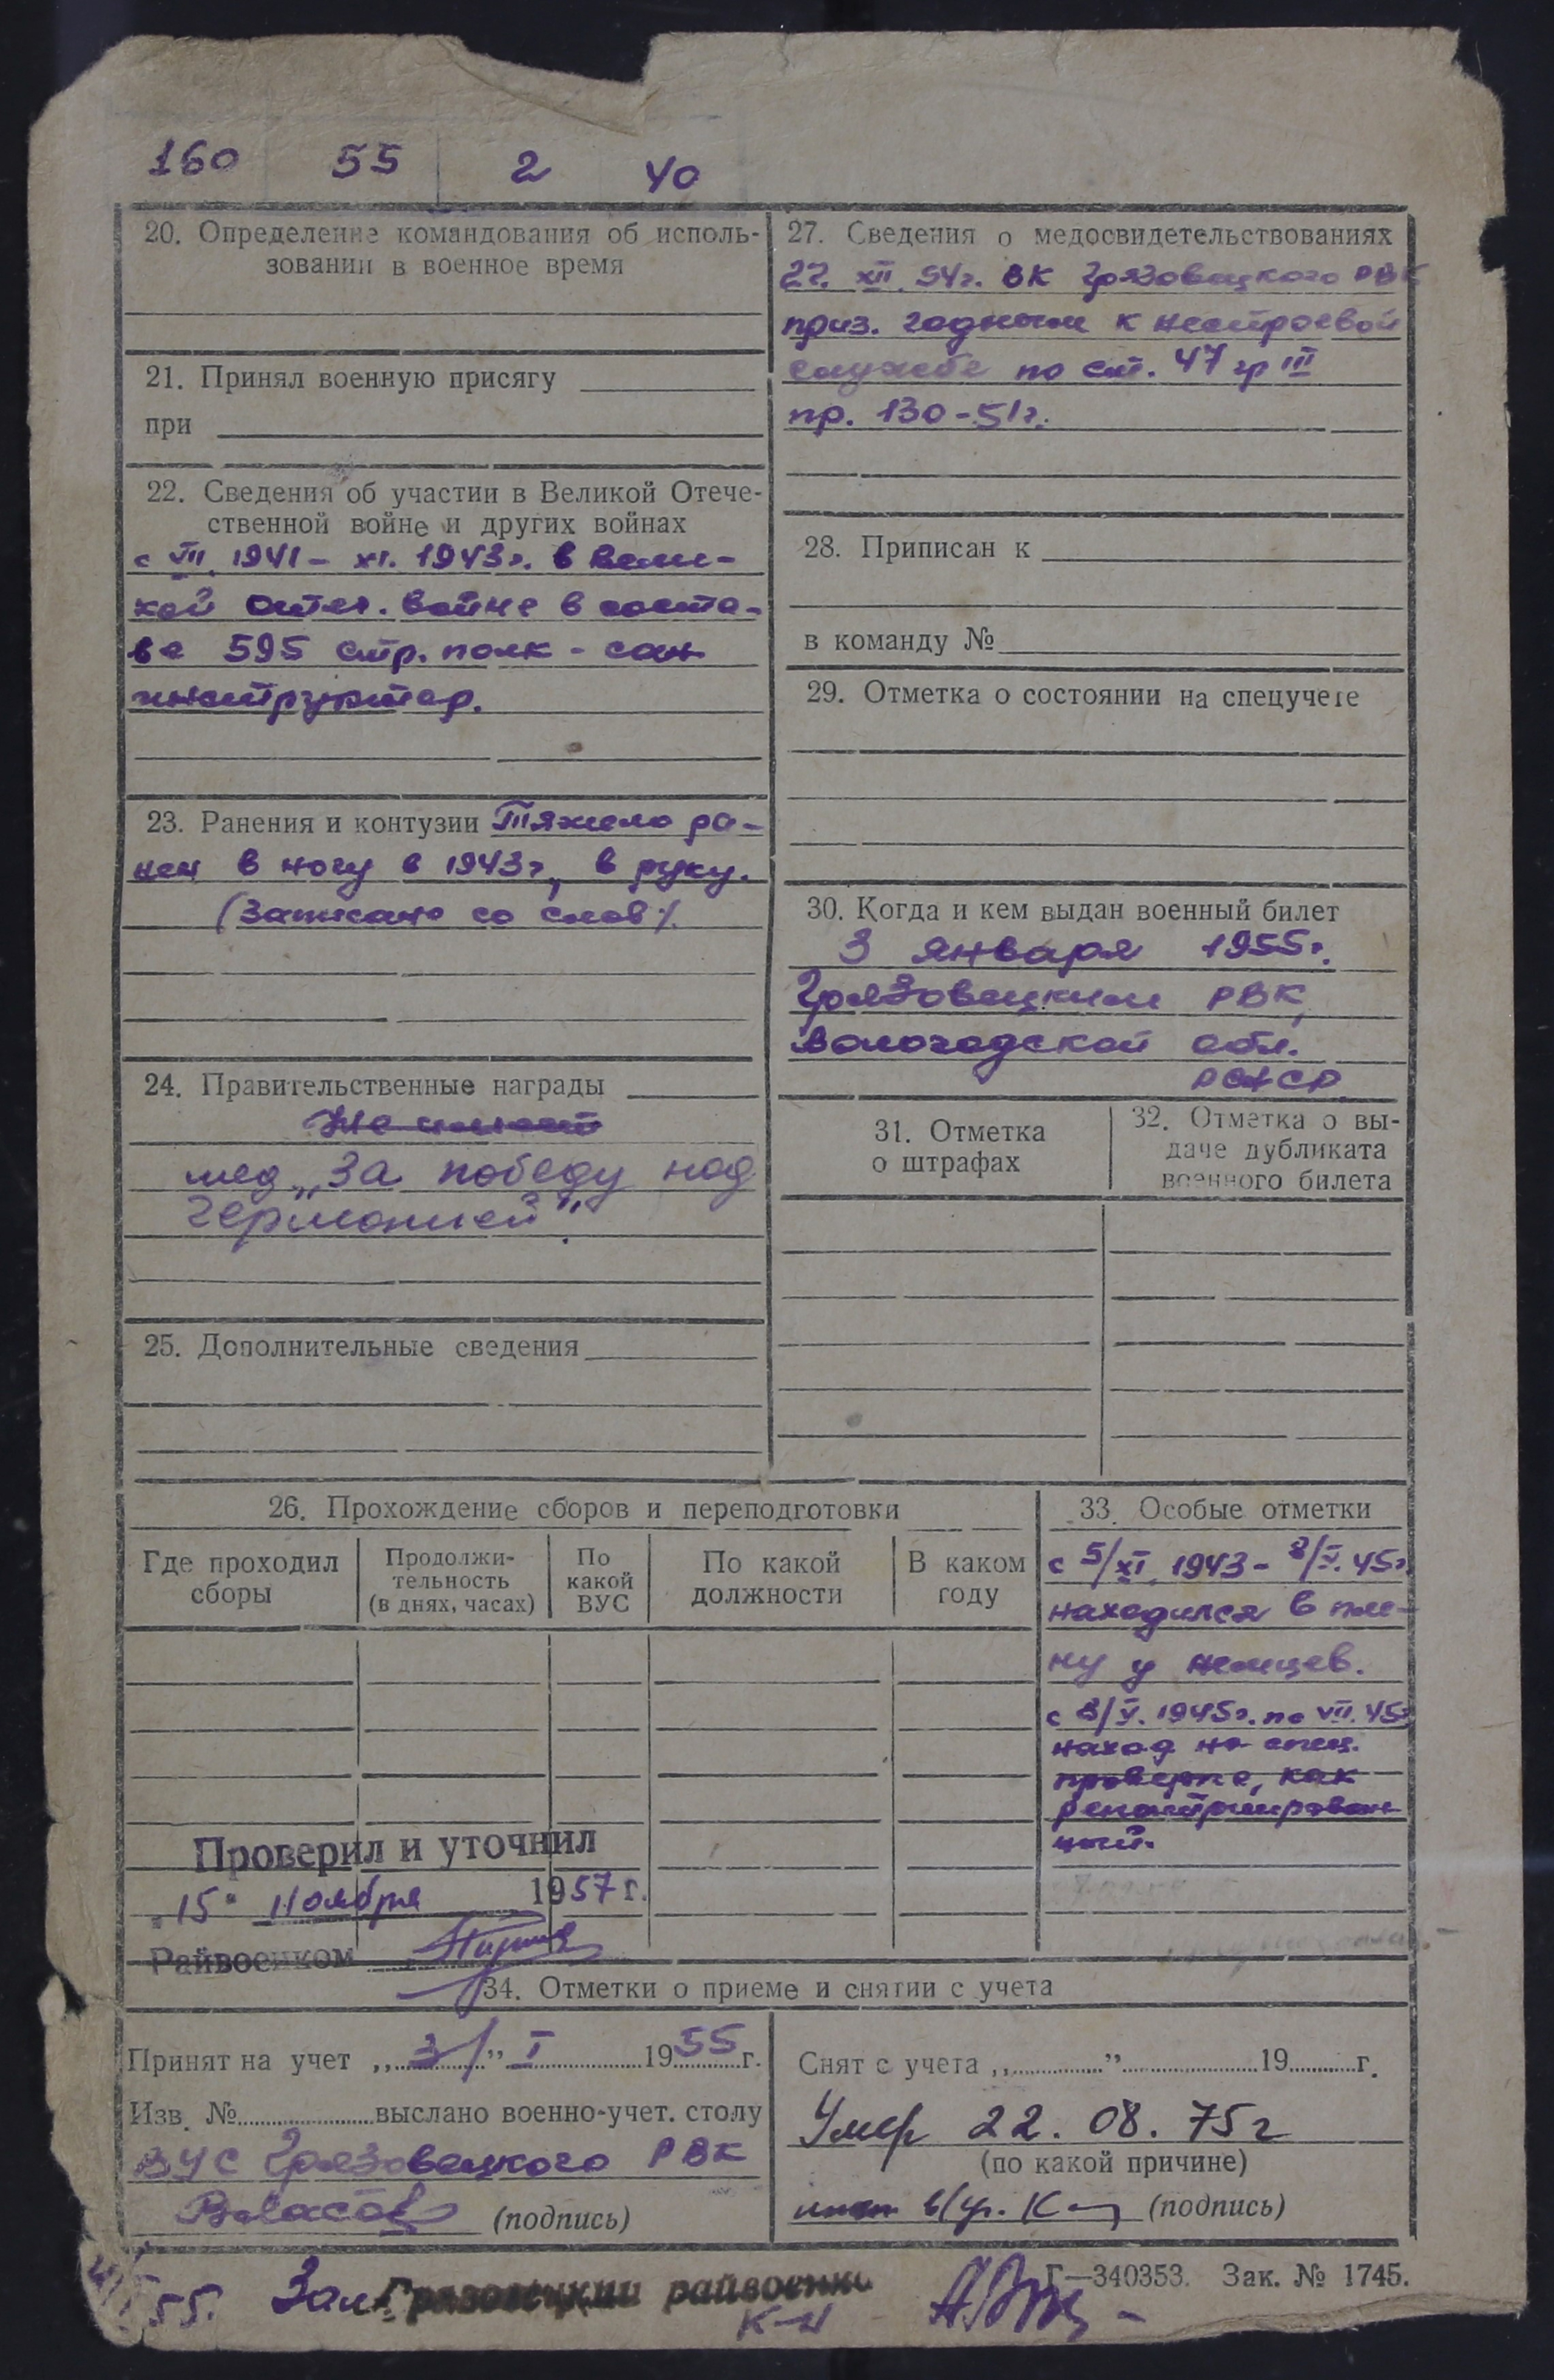 160 55 2 40
20. Определение командования об исполь-
зовании в военное время
21. Принял военную присягу
при
22. Сведения об участии в Великой Отече-
ственной войне и других войнах
с VII. 1941 – XI. 1943г. в Вели-
кой Отеч. войне в соста-
ве 595 стр. полк - сан
инструктор.
23. Ранения и контузии Тяжело ра-
нен в ногу в 1943г, в руку.
(Записано со слов).
24. Правительственные награды
Не имеет
мед „За победу над
Германией".
25. Дополнительные сведения
27. Сведения о медосвидетельствованиях
27. XII. 54г. ВК Грязовецкого РВК
приз. годным к нестроевой
службе по ст. 47 гр III
пр. 130-51г.
28. Приписан к
в команду №
29. Отметка о состоянии на спецучете
30. Когда и кем выдан военный билет
3 января 1955г.
Грязовецким РВК,
Вологодской обл.
РСФСР
31. Отметка
о штрафах
32. Отметка о вы-
даче дубликата
военного билета
26. Прохождение сборов и переподготовки
Где проходил
сборы
Продолжи-
тельность
(в днях, часах)
По
какой
ВУС
По какой
должности
В каком
году
33. Особые отметки
с 5/XI. 1943 – 8/V. 45г.
находился в пле-
ну у немцев.
с 8/V. 1945г. по VII. 45г
наход на спец.
проверке, как
репатриирован
ный.
Проверил и уточнил
„15" Ноября 1957 г.
Райвоенком
34. Отметки о приеме и снятии с учета
Принят на учет „3" I 1955 г.
Изв. № выслано военно-учет. столу
ВУС Грязовецкого РВК
(подпись)
Снят с учета „ " 19 г.
Умер 22. 08. 75г
(по какой причине)
(подпись)
55. Зам. Грязовецкий райвоенко
к-н
Г—340353. Зак. № 1745.